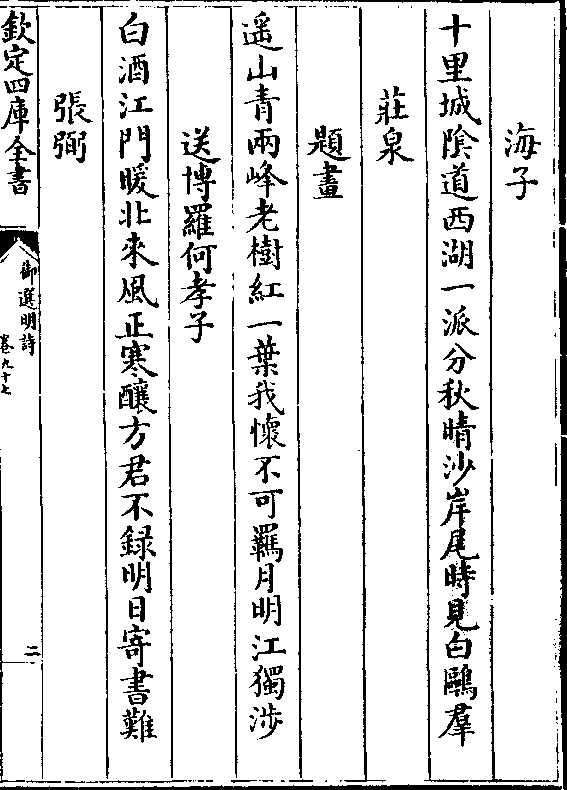 海子
十里城隂道西湖一派分秋晴沙岸尾時見白鷗羣
莊泉
題畫
遥山青兩峰老樹紅一葉我懷不可羈月明江獨涉
送博羅何孝子
白酒江門暖北來風正寒釀方君不録明日寄書難
張弼
欽定四庫全書
御選明詩
卷九十七
二